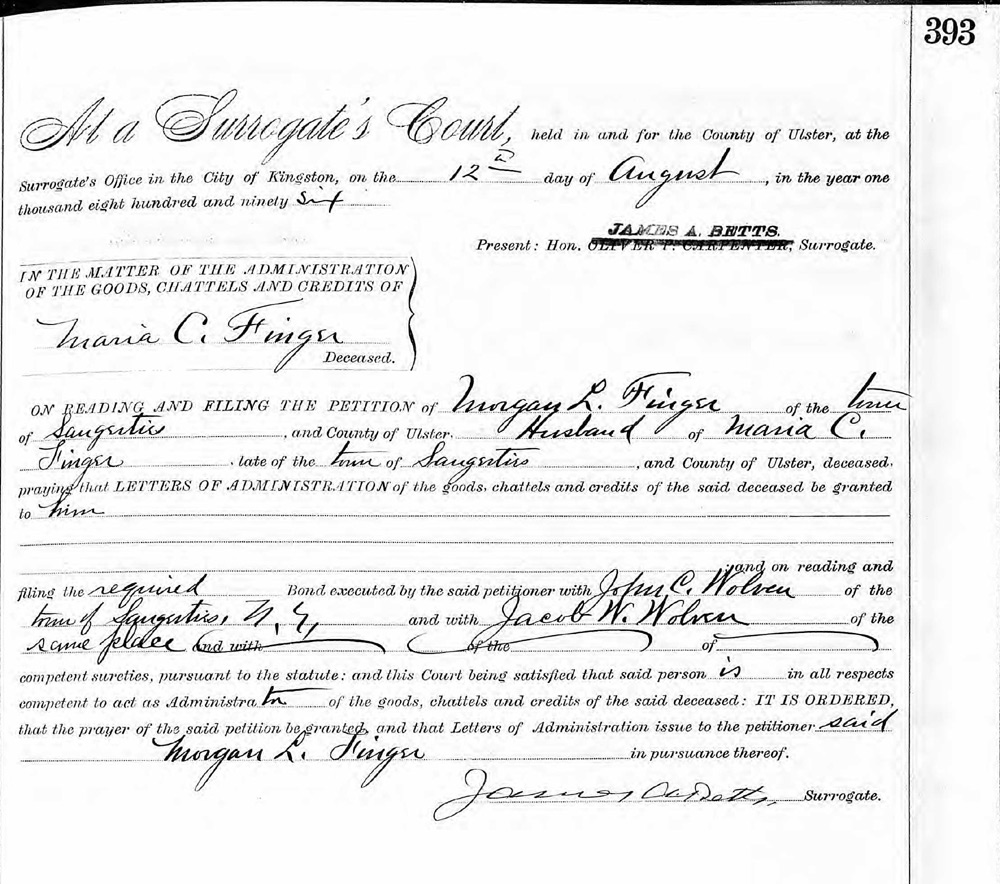 393
At a Surrogate's Court, held in and for the County of Ulster, at the
Surrogate's Office in the City of Kingston, on the 12th day of August, in the year one
thousand eight hundred and ninety six
JAMES A. BETTS.
Present: Hon. OLIVER P. CARPENTER, Surrogate.
IN THE MATTER OF THE ADMINISTRATION
OF THE GOODS, CHATTELS AND CREDITS OF
Maria C. Finger
Deceased.
ON READING AND FILING THE PETITION of Morgan L. Finger of the town
of Saugerties, and County of Ulster. Husband of Maria C.
Finger late of the town of Saugerties, and County of Ulster, deceased,
praying that LETTERS OF ADMINISTRATION of the goods, chattels and credits of the said deceased be granted
to him
and on reading and
filing the required Bond executed by the said petitioner with John C. Wolven of the
town of Saugerties, N.Y, and with Jacob W. Wolven of the
same place and with of the of
competent sureties, pursuant to the statute: and this Court being satisfied that said person is in all respects
competent to act as Administrator of the goods, chattels and credits of the said deceased: IT IS ORDERED,
that the prayer of the said petition be granted, and that Letters of Administration issue to the petitioner said
Morgan L. Finger in pursuance thereof.
James A. Betts, Surrogate.